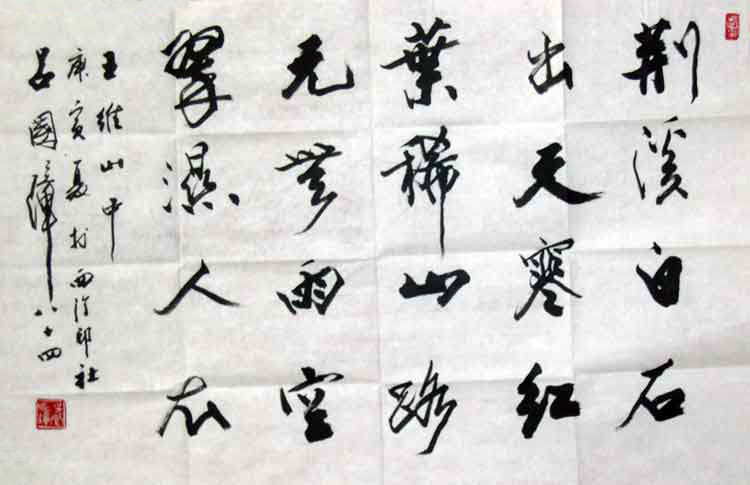 荆溪白石
出天寒红
葉稀山路
元無雨空
翠濕人衣
王維山中
庚寅夏於西泠印社
吕國璋八十四